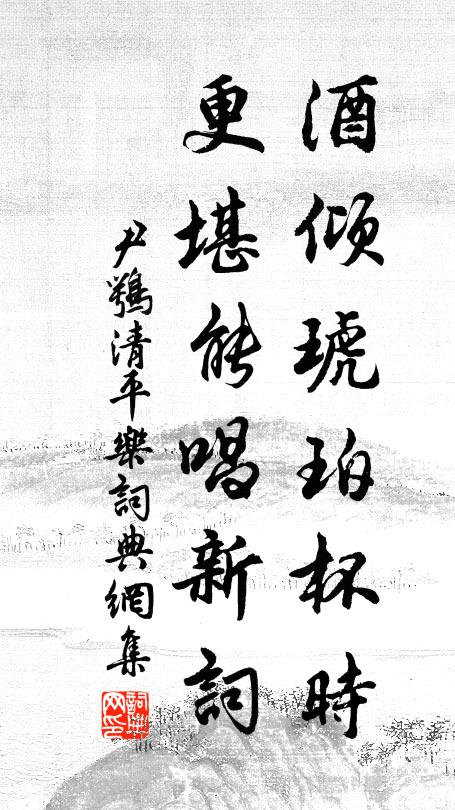 酒傾琥珀杯時
更堪能唱新詞
尹鶚清平樂詞典網集